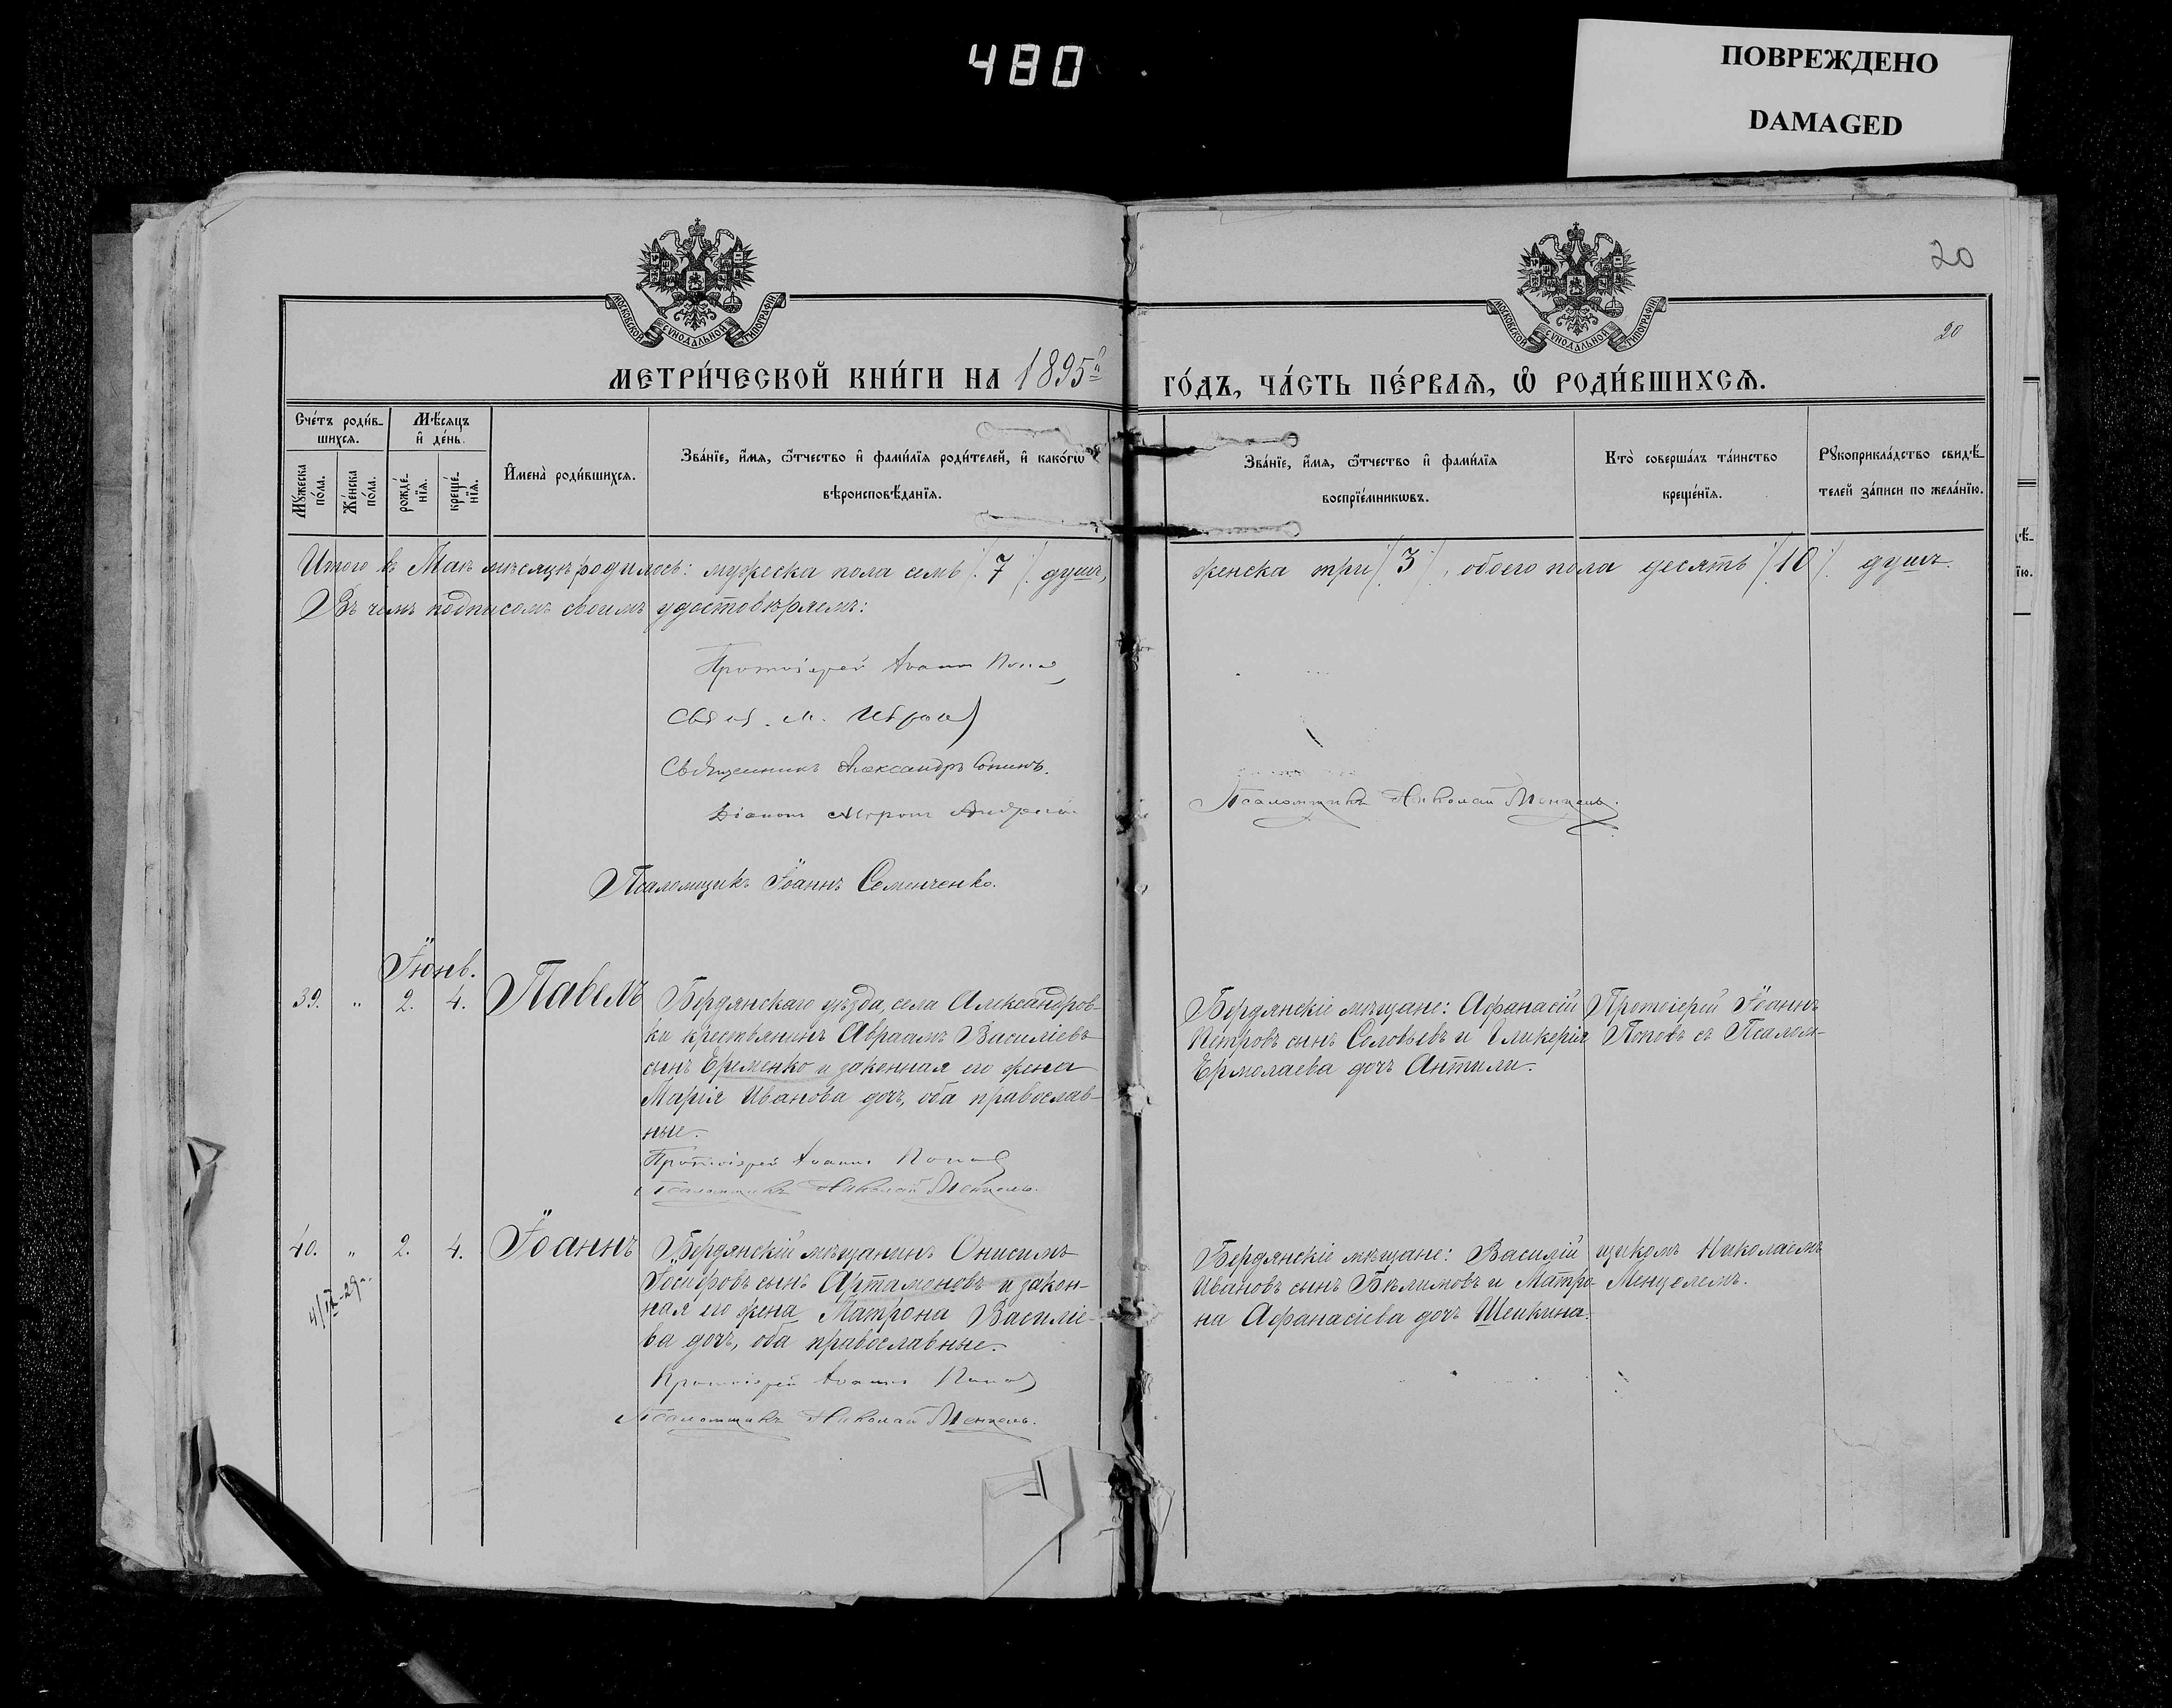 480
ПОВРЕЖДЕНО
DAMAGED
20
20
МОСКОВСКОЙ СѴНОДАЛЬНОЙ ТИПОГРАФІИ
МОСКОВСКОЙ СѴНОДАЛЬНОЙ ТИПОГРАФІИ
МЕТРИ́ЧЕСКОЙ КНИ́ГИ НА 1895й
ГО́ДЪ, ЧА́СТЬ ПЕ́РВАѦ, Ѽ РОДИ́ВШИХСѦ.
Сче́тъ роди́в-
шихсѧ.
Мꙋ́жеска
по́ла.
Же́нска
по́ла.
Мѣ́сѧцъ
и҆ де́нь.
рожде́-
нїѧ.
креще́-
нїѧ.
И҆мена̀ роди́вшихсѧ.
Зва́нїе, и҆́мѧ, ѻ҆́тчество и҆ фами́лїѧ роди́телей, и҆ како́гѡ
вѣроисповѣ́данїѧ.
Зва́нїе, и҆́мѧ, ѻ҆́тчество и҆ фами́лїѧ
воспрїе́мникѡвъ.
Кто̀ соверша́лъ та́инство
креще́нїѧ.
Рꙋкоприкла́дство свидѣ́-
телей за́писи по жела́нїю.
Итого въ Маѣ мѣсяцѣ родилось: мужеска пола семь /7/ душъ,
женска три /3/, обоего пола десять /10/ душъ.
Въ чемъ подписомъ своимъ удостовѣряемъ:
Протоіерей Іоаннъ Поповъ
Свящ. М.
Священникъ Александръ
Діаконъ
Псаломщикъ Николай Менцель.
Псаломщикъ Іоаннъ Семенченко.
Іюнь.
39. " 2. 4. Павелъ
Бердянскаго уѣзда, села Александров-
ки крестьянинъ Авраамъ Василіевъ
сынъ Ерименко и законная его жена
Марія Иванова дочь, оба православ-
ные.
Протоіерей Іоаннъ Поповъ
Псаломщикъ Николай Менцель.
Бердянскіе мѣщане: Афанасій
Петровъ сынъ Соловьевъ и Гликерія
Ермолаева дочь Антили.
Протоіерей Іоаннъ
Поповъ съ Псалом-
40. " 2. 4. Іоаннъ
4/IX-29г.
Бердянскій мѣщанинъ Онисимъ
Іосифовъ сынъ Артамоновъ и закон-
ная его жена Матрона Василіе-
ва дочь, оба православные.
Протоіерей Іоаннъ Поповъ
Псаломщикъ Николай Менцель.
Бердянскіе мѣщане: Василій
Ивановъ сынъ Бѣлимовъ и Матро-
на Афанасіева дочь Шейкина.
щикомъ Николаемъ
Менцелемъ.